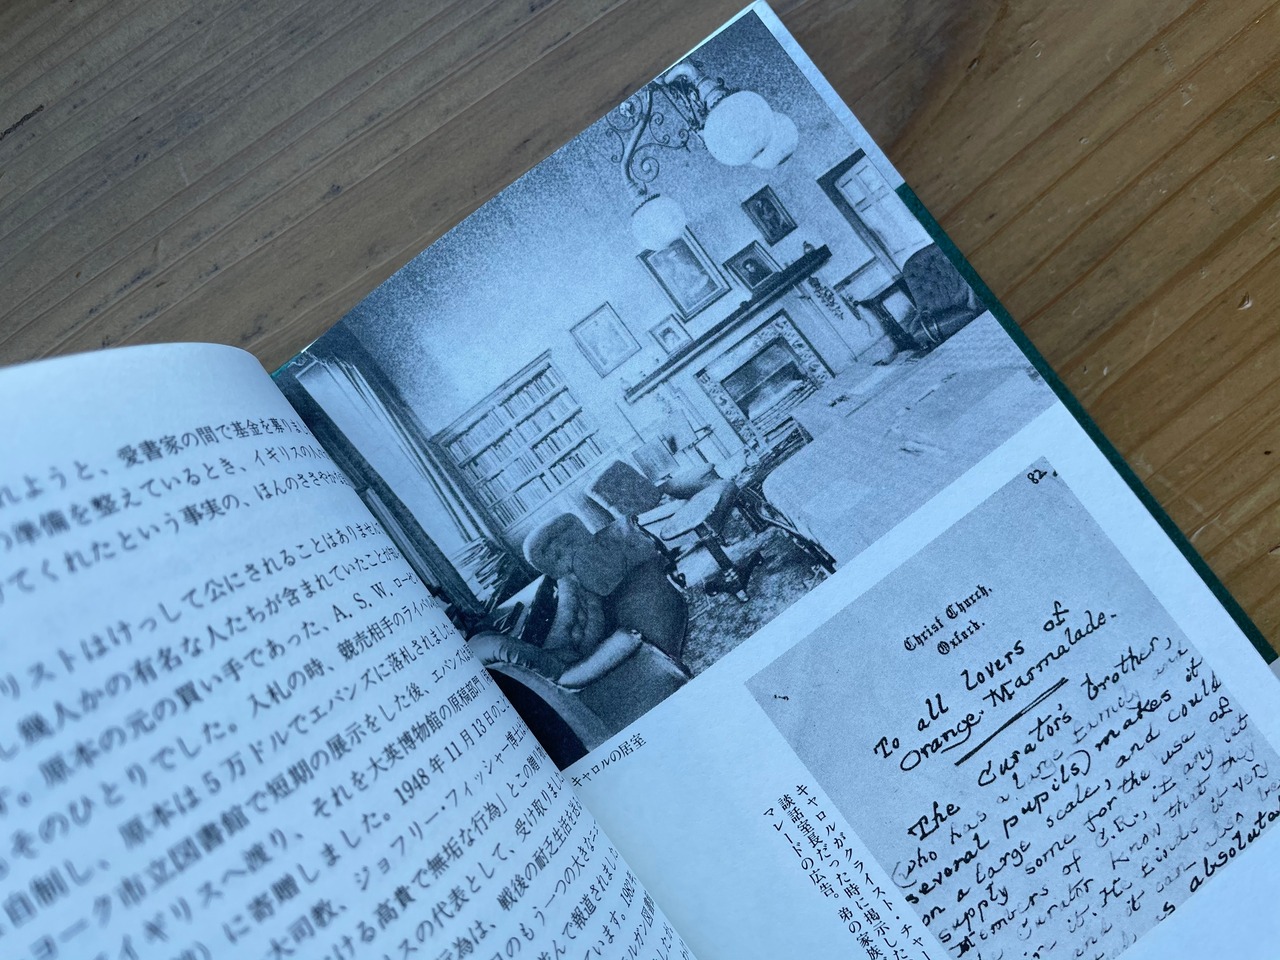 れようと、愛書家の間で基金を募りまし
の準備を整えているとき、イギリスの人々
けてくれたという事実の、ほんのささやかな
リストはけっして公にされることはありません
し幾人かの有名な人たちが含まれていたことが
す。原本の元の買い手であった、A. S. W. ローゼ
そのひとりでした。入札の時、競売相手のライバル
自制し、原本は5万ドルでエバンズに落札されました
ヨーク市立図書館で短期の展示をした後、エバンズは
イギリスへ渡り、それを大英博物館の原稿部門
に寄贈しました。1948年11月13日のこ
大司教、ジョフリー・フィッシャー博士
ける高貴で無垢な行為」とこの贈り物
スの代表として、受け取りまし
行為は、戦後の耐乏生活を送
のもう一つの大きなニュー
んで報道されました
ています。
キャロルの居室
キャロルがクライスト・チャー
談話室長だった時に掲示した
マレードの広告。弟の家族
82
Christ Church,
Oxford.
To all lovers of
Orange Marmalade.
The Curator's brother,
(who has a large family and
several pupils) makes it
on a large scale, and could
supply some for the use of
Members of C.R., if any let
Curator know that they
in it. He finds it very
and it can also be
is absolute